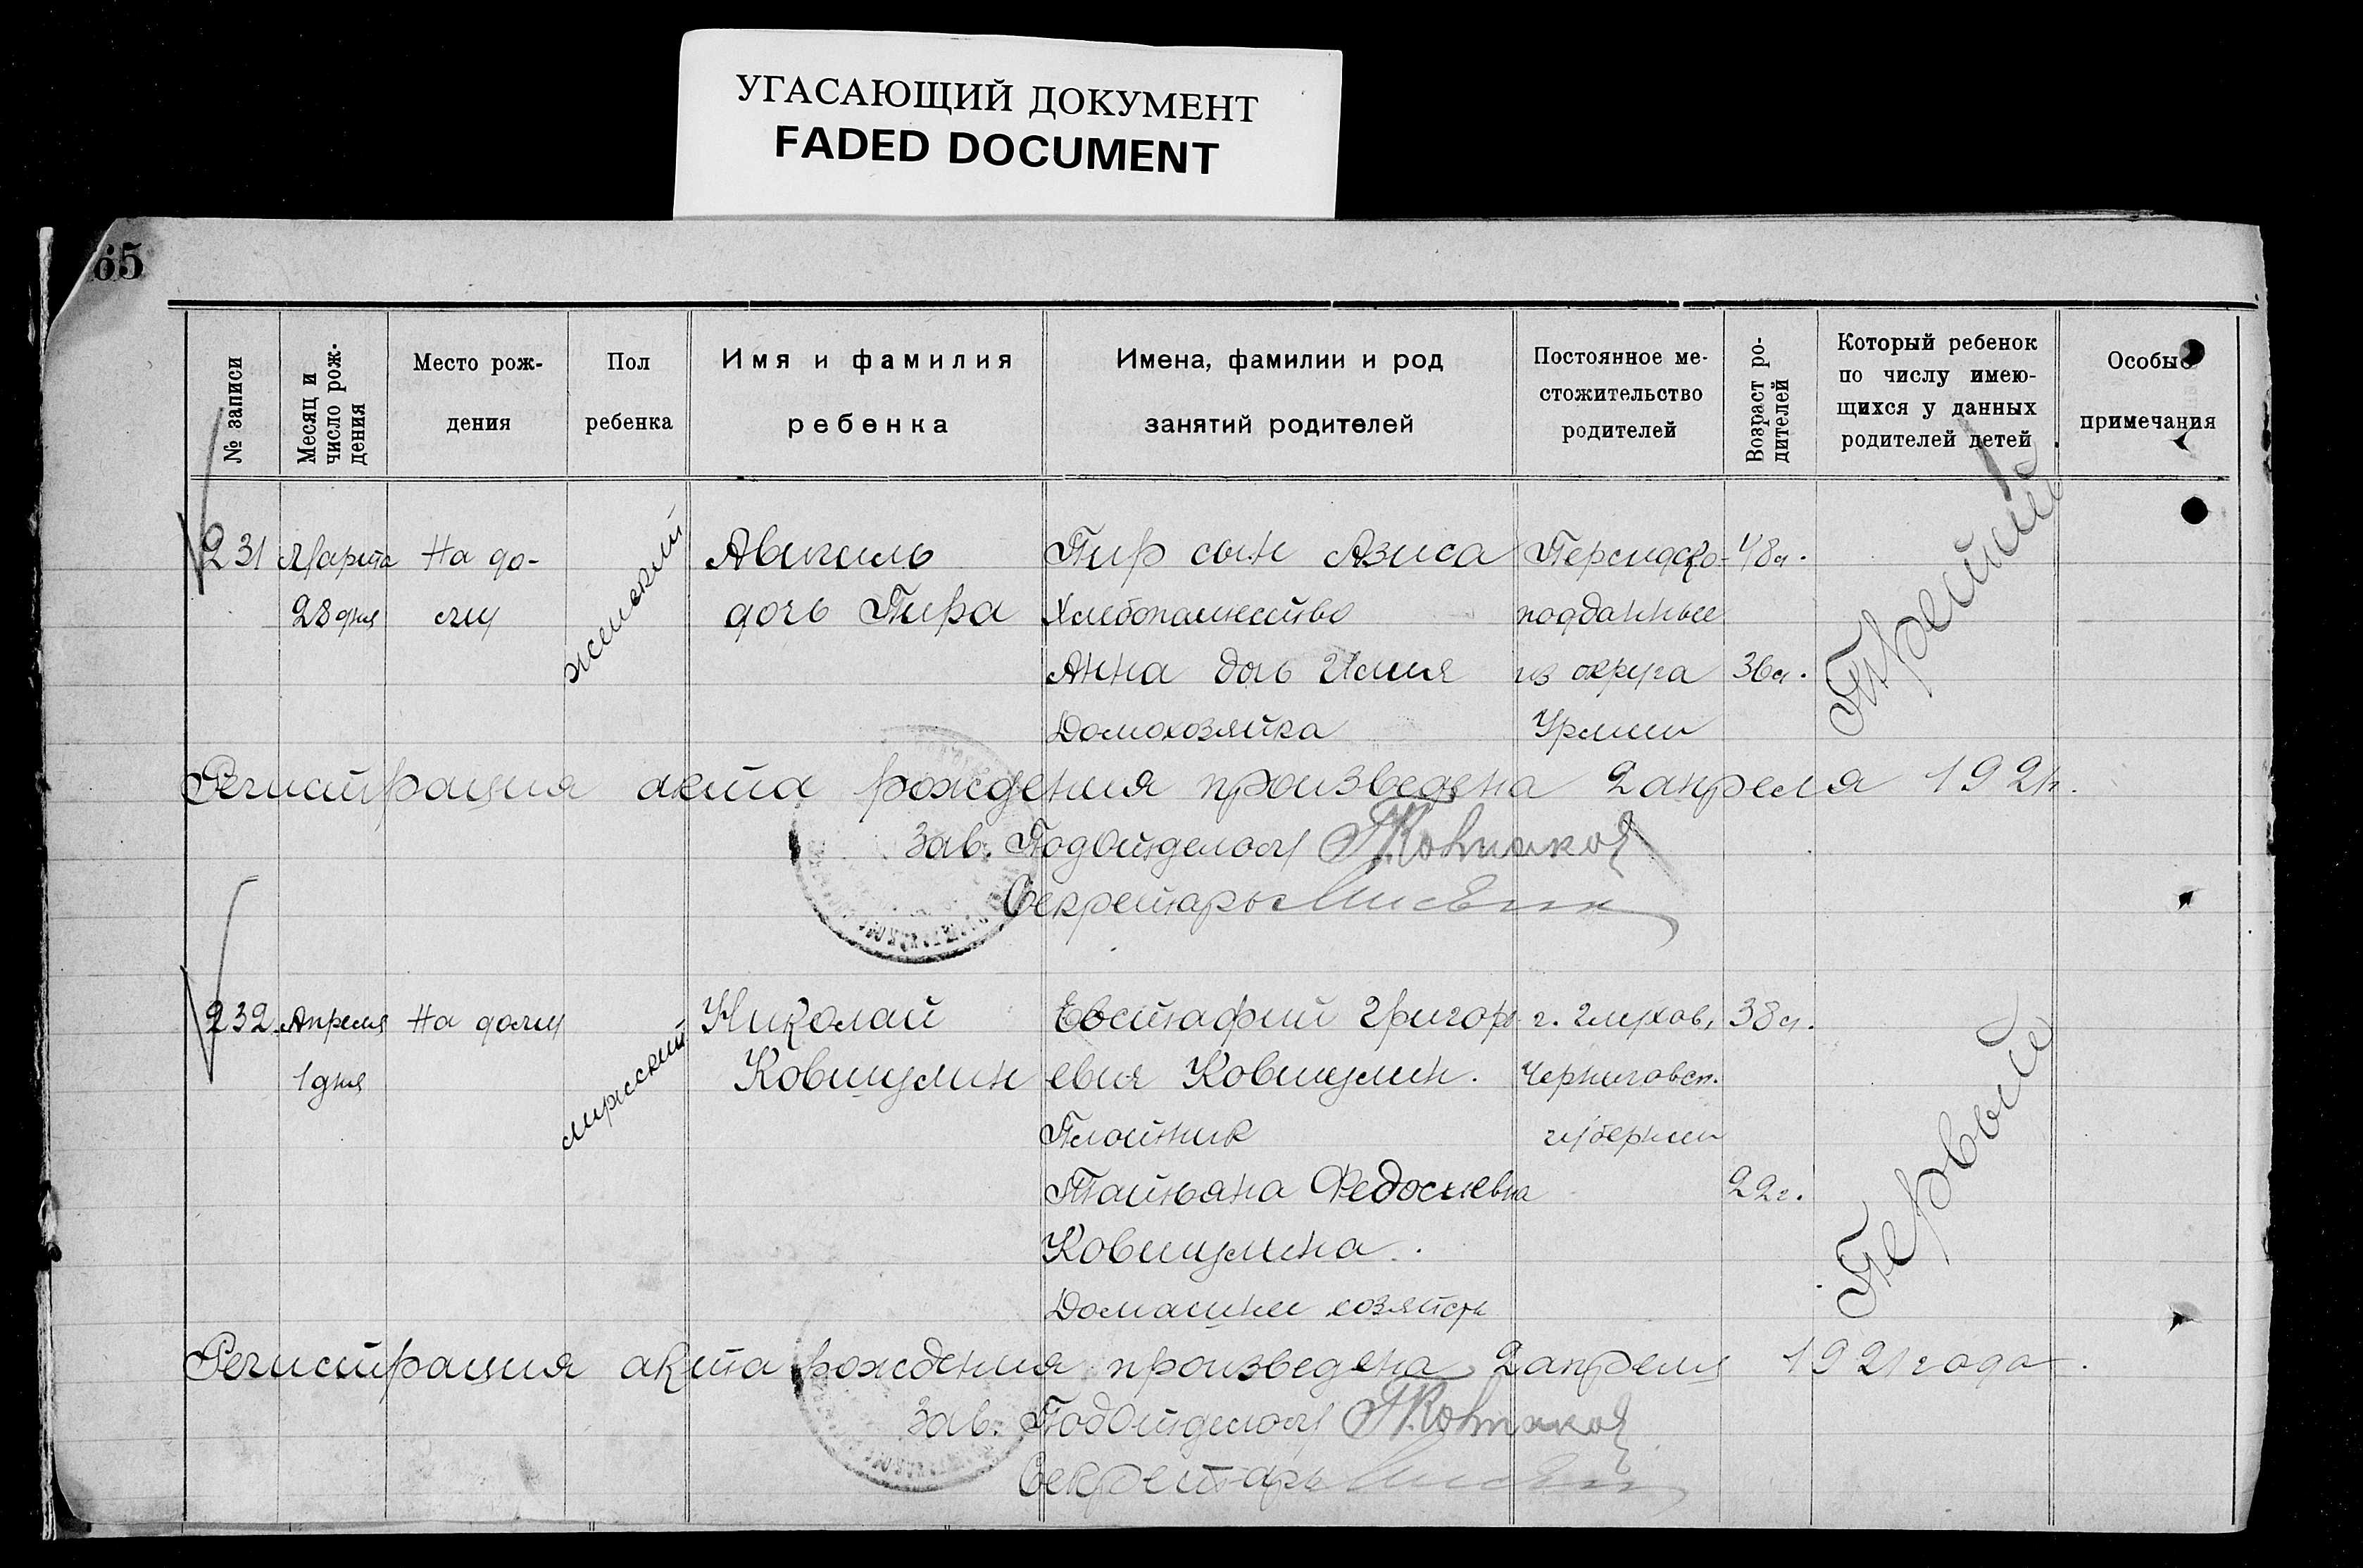 УГАСАЮЩИЙ ДОКУМЕНТ
FADED DOCUMENT
65
№ записи
Месяц и число рож-дения
Место рож-
дения
Пол
ребенка
Имя и фамилия
ребенка
Имена, фамилии и род
занятий родителей
Постоянное ме-
стожительство
родителей
Возраст ро-дителей
Который ребенок
по числу имею-
щихся у данных
родителей детей
Особые
примечания
231 Марта На до- женский Авигиль Пир сын Азиса Персидско- 48л. Третий
28 дня му дочь Пира Хлебопашество подданные
Анна дочь из округа 36л.
Домохозяйка Урмии
Регистрация акта рождения произведена 2 апреля 1921г.
Зав. Подотделом
Секретарь
232. Апреля На дому мужской Николай Евстафий Григорь- г. Глухов, 38л. Первый
1 дня Ковшулин евич Ковшулин. Черниговск.
Плотник губернии
Татьяна Федосиевна 22г.
Ковшулина.
Домашнее хозяйств
Регистрация акта рождения произведена 2 апреля 1921 года.
Зав. Подотделом
Секретарь